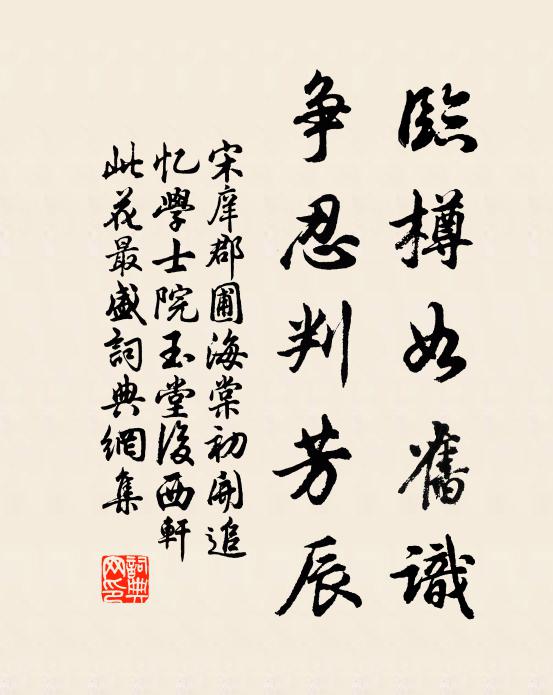 臨樽如舊識
争忍判芳辰
宋庠郡圃海棠初開追
忆學士院玉堂後西軒
此花最盛詞典網集
詞典网印